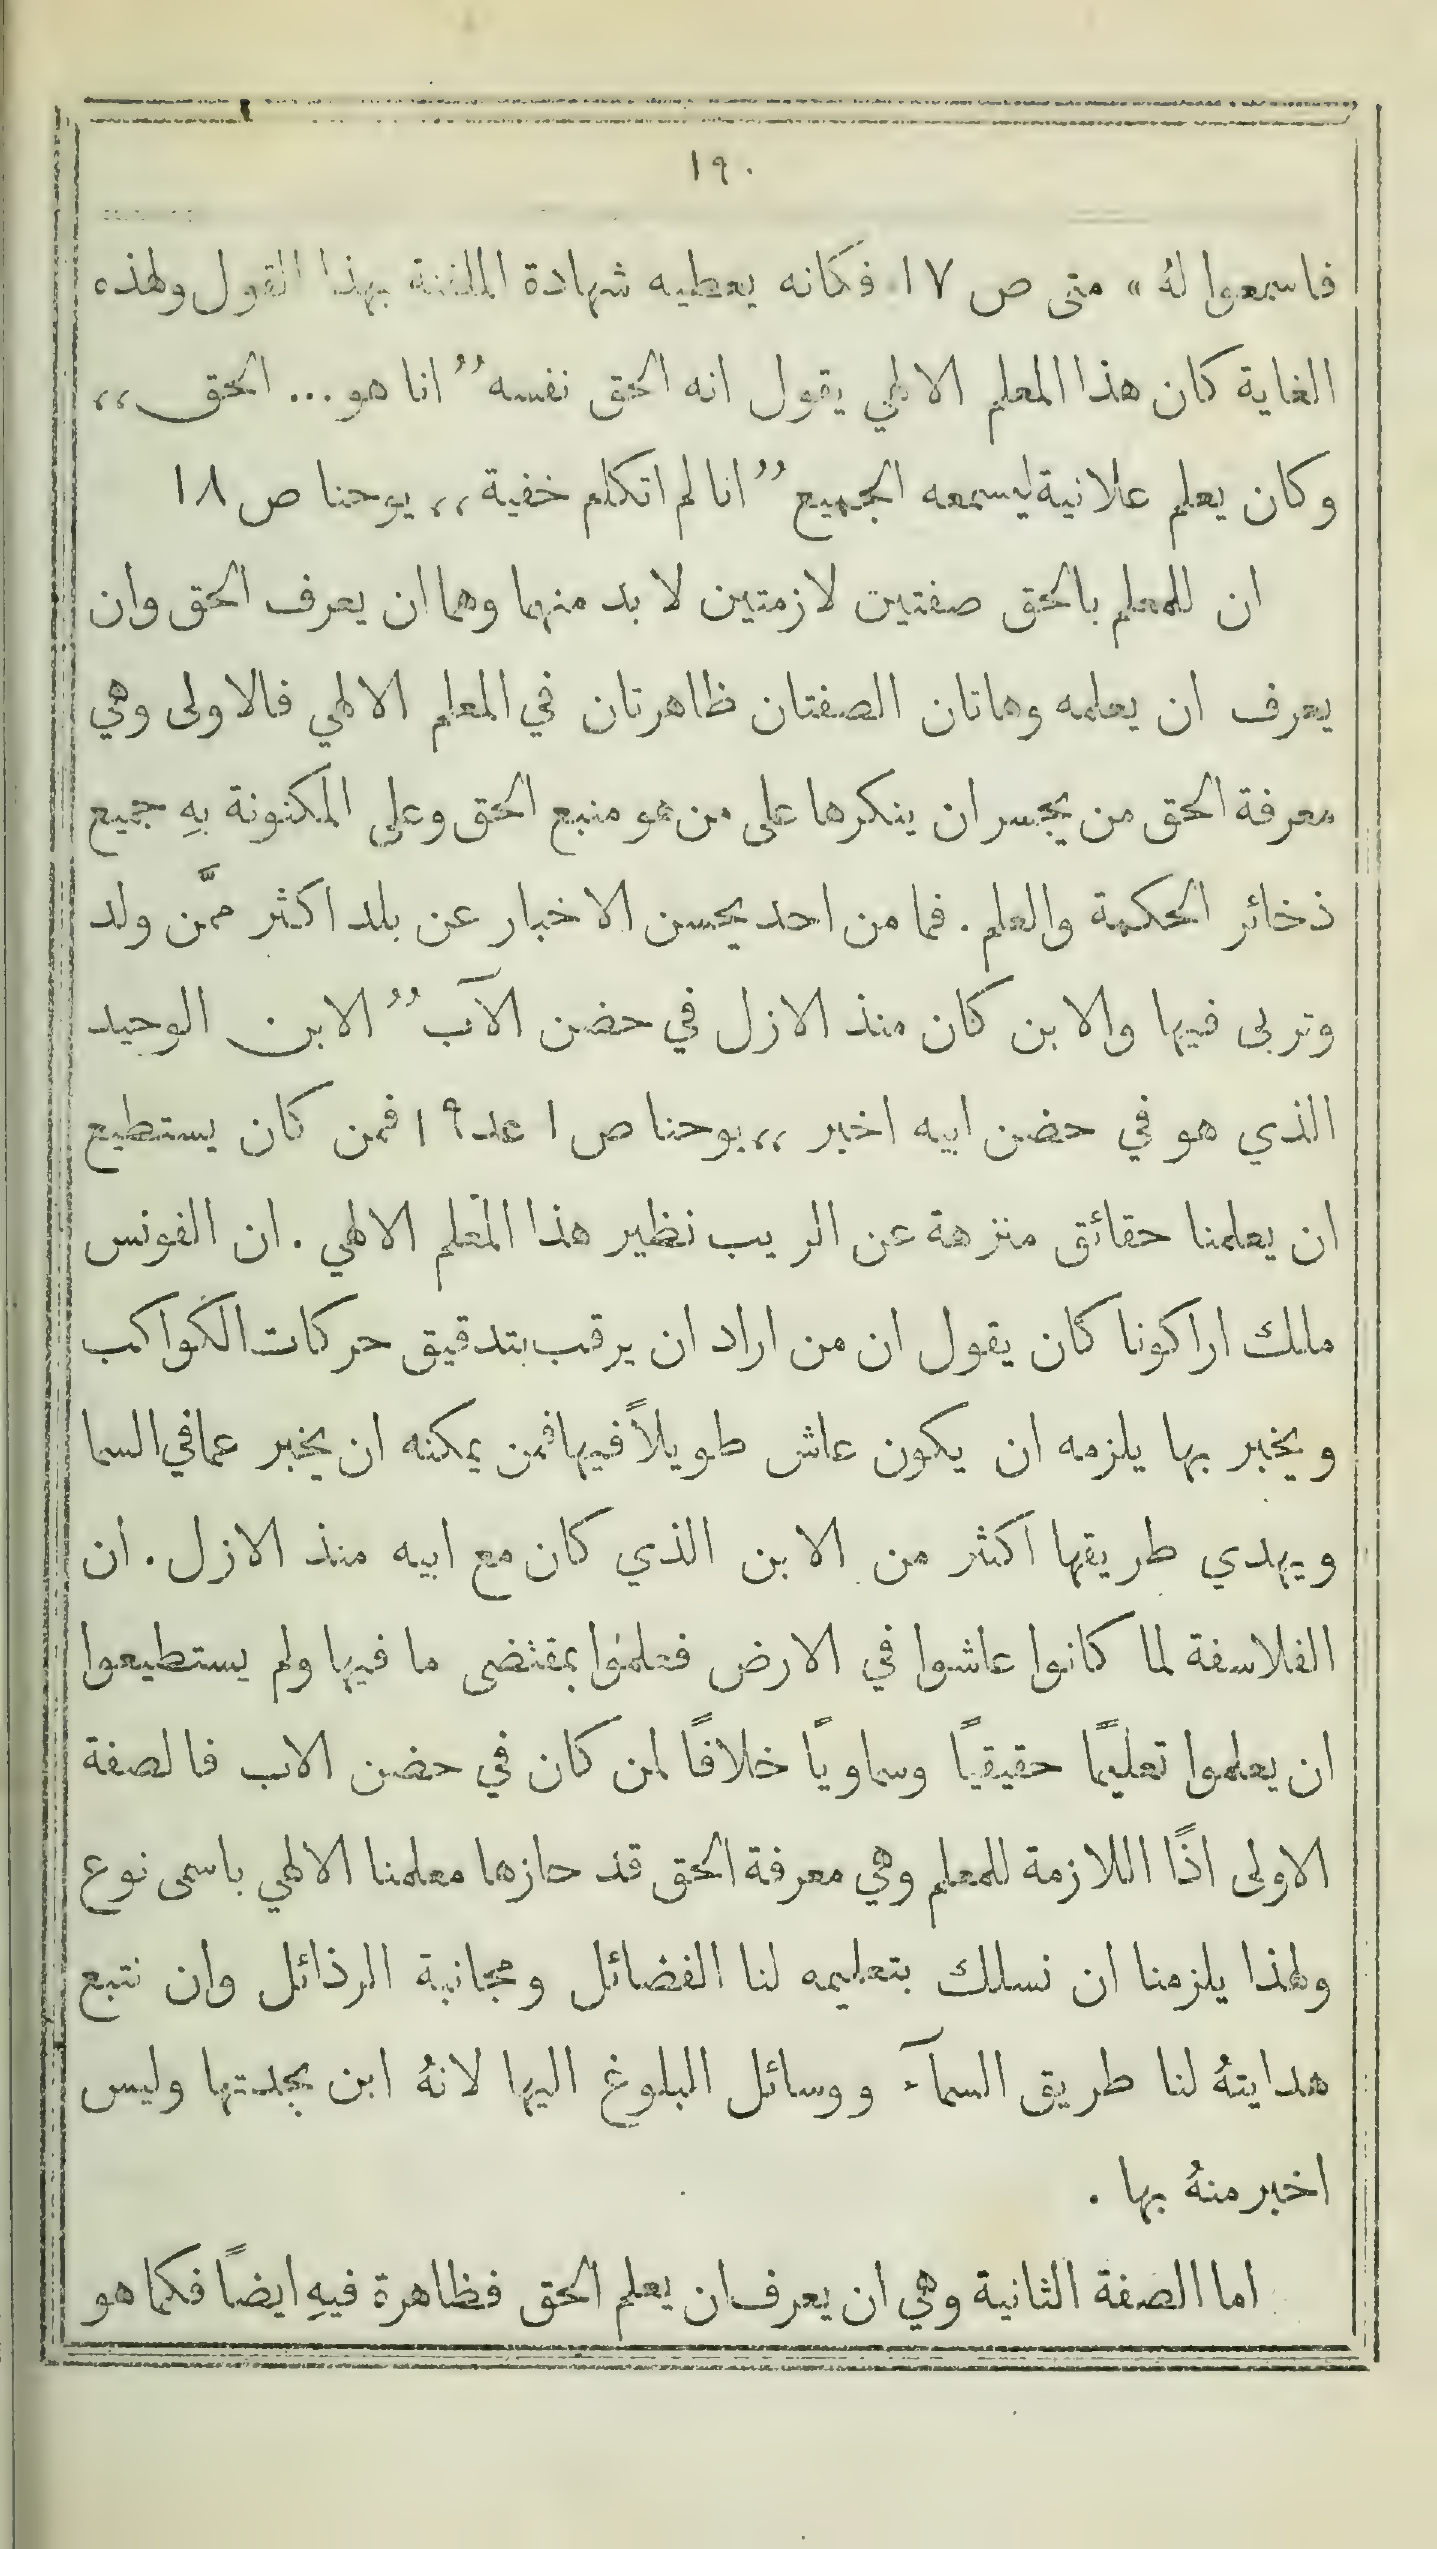 ١٩٠
فاسمعوا لهُ » متى ص ١٧ فكانه يعطيه شهادة الملفنة بهذا القول ولهذه
الغاية كان هذا المعلم الالهي يقول انه الحق نفسه ” انا هو ... الحق ،،
وكان يعلم علانية ليسمعه الجميع ” انا لم اتكلم خفية ،، يوحنا ص ١٨
ان للمعلم بالحق صفتين لازمتين لا بد منهما وهما ان يعرف الحق وان
يعرف ان يعلمه وهاتان الصفتان ظاهرتان في المعلم الالهي فالاولى وهي
معرفة الحق من يجسر ان ينكرها على من هو منبع الحق وعلى المكنونة بهِ جميع
ذخائر الحكمة والعلم . فما من احد يحسن الاخبار عن بلد اكثر ممَّن ولد
وتربى فيها والابن كان منذ الازل في حضن الآب ” الابن الوحيد
الذي هو في حضن ابيه اخبر ،، يوحنا ص ١ عد ١٩ فمن كان يستطيع
ان يعلمنا حقائق منزهة عن الريب نظير هذا المعلم الالهي . ان الفونس
ملك اراكونا كان يقول ان من اراد ان يرقب بتدقيق حركات الكواكب
ويخبر بها يلزمه ان يكون عاش طويلاً فيها فمن يمكنه ان يخبر عما في السما
ويهدي طريقها اكثر من الابن الذي كان مع ابيه منذ الازل . ان
الفلاسفة لما كانوا عاشوا في الارض فعلموا بمقتضى ما فيها ولم يستطيعوا
ان يعلموا تعليمًا حقيقيًا وسماويًا خلافًا لمن كان في حضن الاب فالصفة
الاولى اذًا اللازمة للمعلم وهي معرفة الحق قد حازها معلمنا الالهي باسمى نوع
ولهذا يلزمنا ان نسلك بتعليمه لنا الفضائل ومجانبة الرذائل وان نتبع
هدايتهُ لنا طريق السمآء ووسائل البلوغ اليها لانهُ ابن بجدتها وليس
اخبر منهُ بها .
اما الصفة الثانية وهي ان يعرف ان يعلم الحق فظاهرة فيهِ ايضًا فكما هو